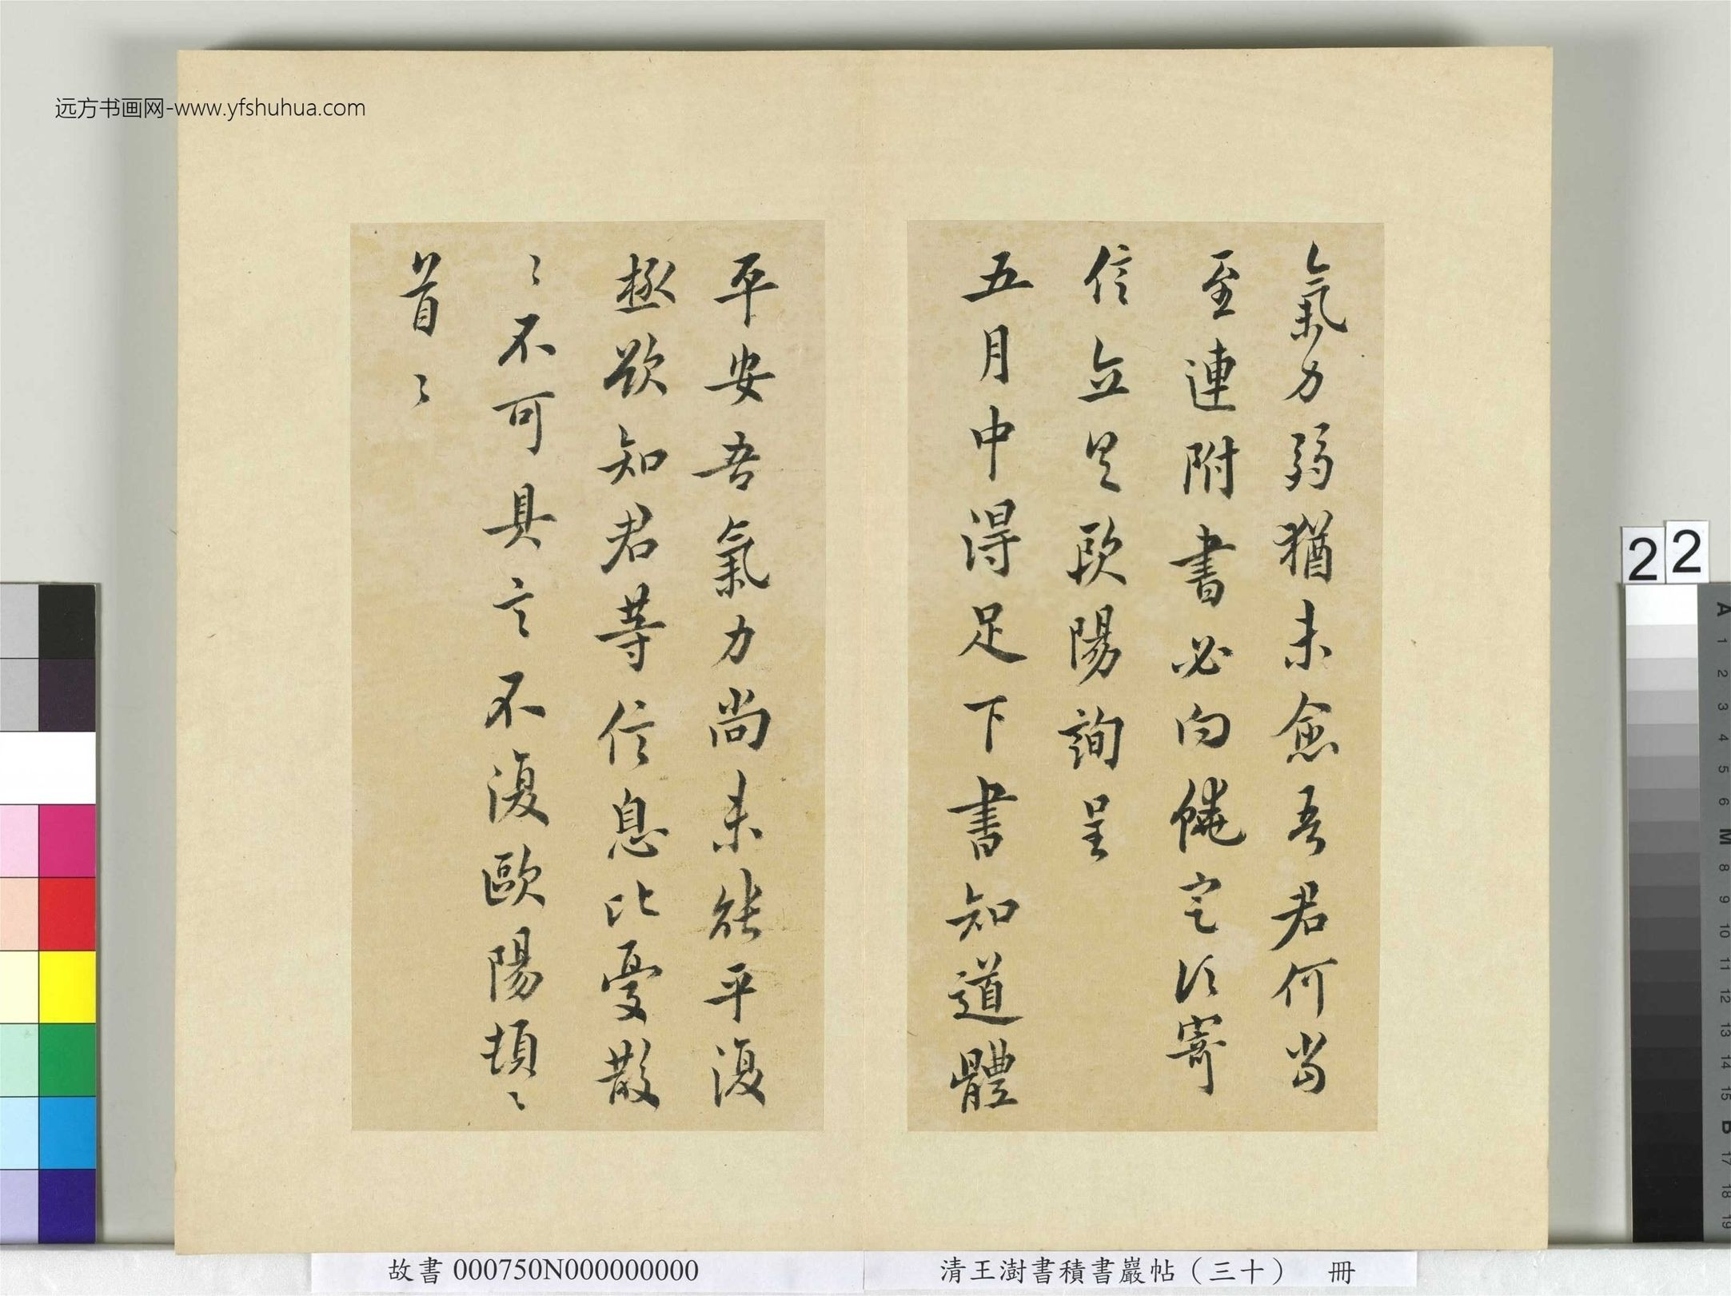 远方书画网-www.yfshuhua.com
氣力弱猶未愈吾君何當
至連附書必向饒定須寄
信立具歐陽詢呈
五月中得足下書知道體
平安吾氣力尚未能平復
極欲知君等信息比憂散
〻不可具言不復歐陽頓〻
首〻
22
A 1 2 3 4 5 6 M 8 9 10 11 12 13 14 15 B 17 18 19
故書 000750N000000000
清王澍書積書巖帖（三十） 冊